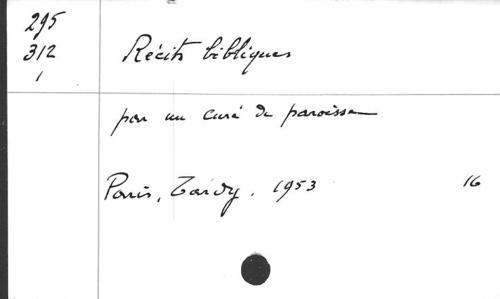 295
312 Récits bibliques
1
par un curé de paroisse
Paris, Tardy. 1953 16